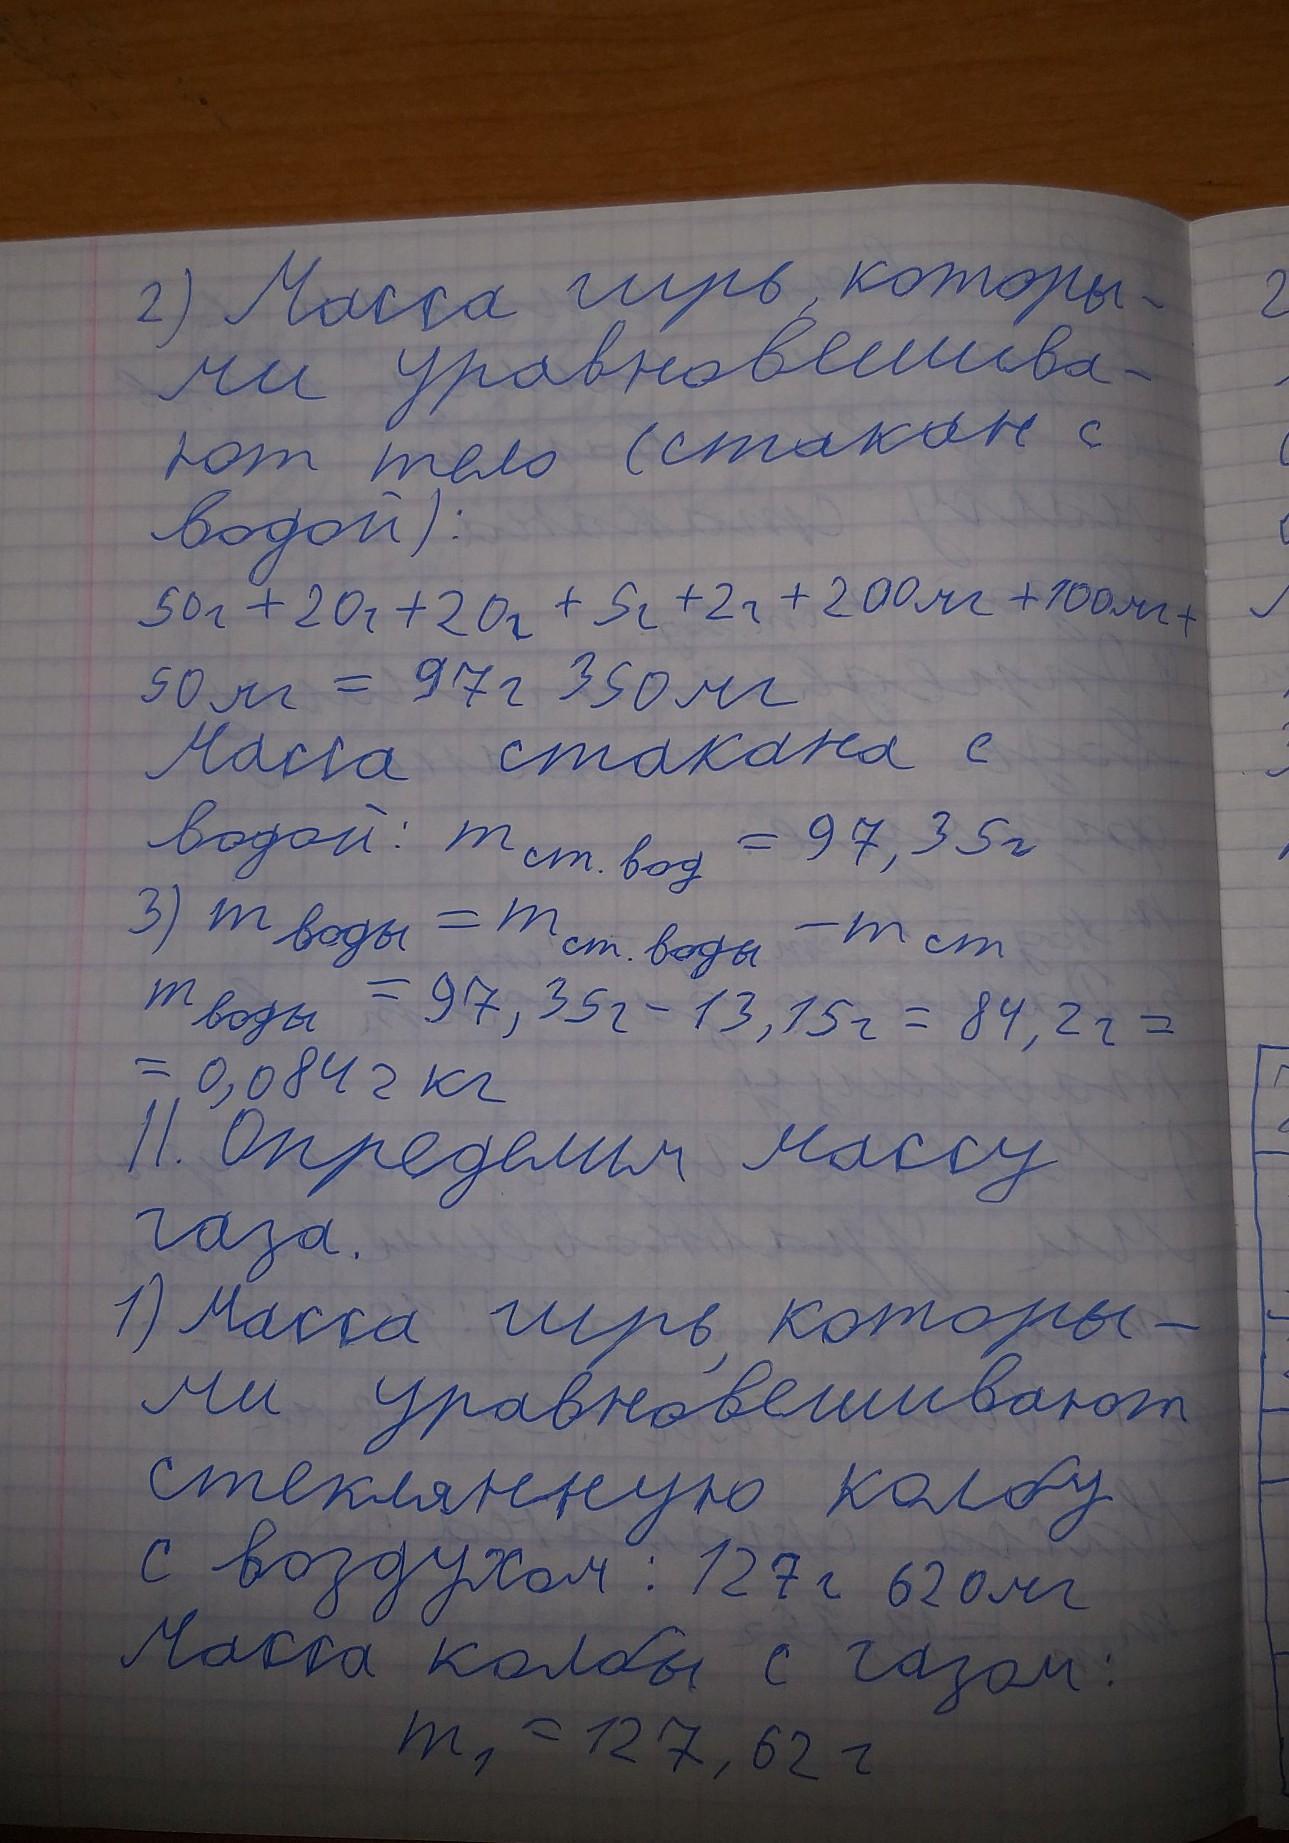 2) Масса гирь, которы-
ми уравновешива-
ют тело (стакан с
водой):
50г + 20г + 20г + 5г + 2г + 200мг + 100мг +
50мг = 97г 350мг
Масса стакана с
водой: m ст. вод = 97,35г
3) m воды = m ст. воды - m ст
m воды = 97,35г - 13,15г = 84,2г =
= 0,0842 кг
II. Определим массу
газа.
1) Масса гирь, которы-
ми уравновешивают
стеклянную колбу
с воздухом: 127г 620мг
Масса колбы с газом:
m₁ = 127,62г